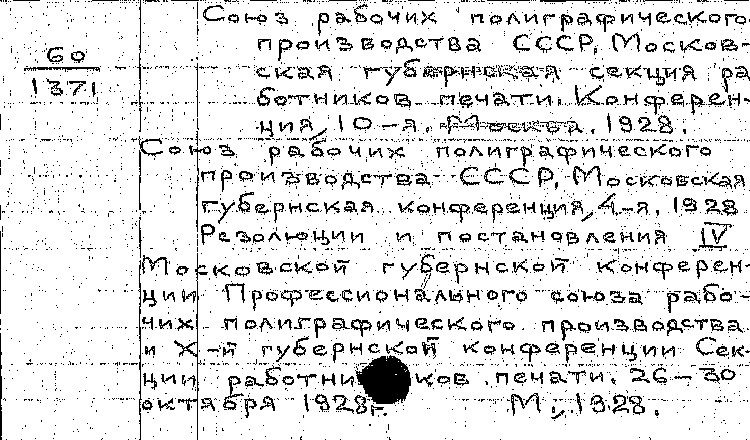 Союз рабочих полиграфического
производства СССР, Москов-
60
ская губернская секция ра
1371
ботников печати. Конферен-
ция, 10-я. Москва. 1928.
Союз рабочих полиграфического
производства СССР, Московская
губернская конференция, 4-я. 1928
Резолюции и постановления IV
Московской губернской конферен-
ции Профессионального союза рабо-
чих полиграфического производства
и X-й губернской конференции Сек-
ции работников печати. 26-30
октября 1928г. М., 1928.